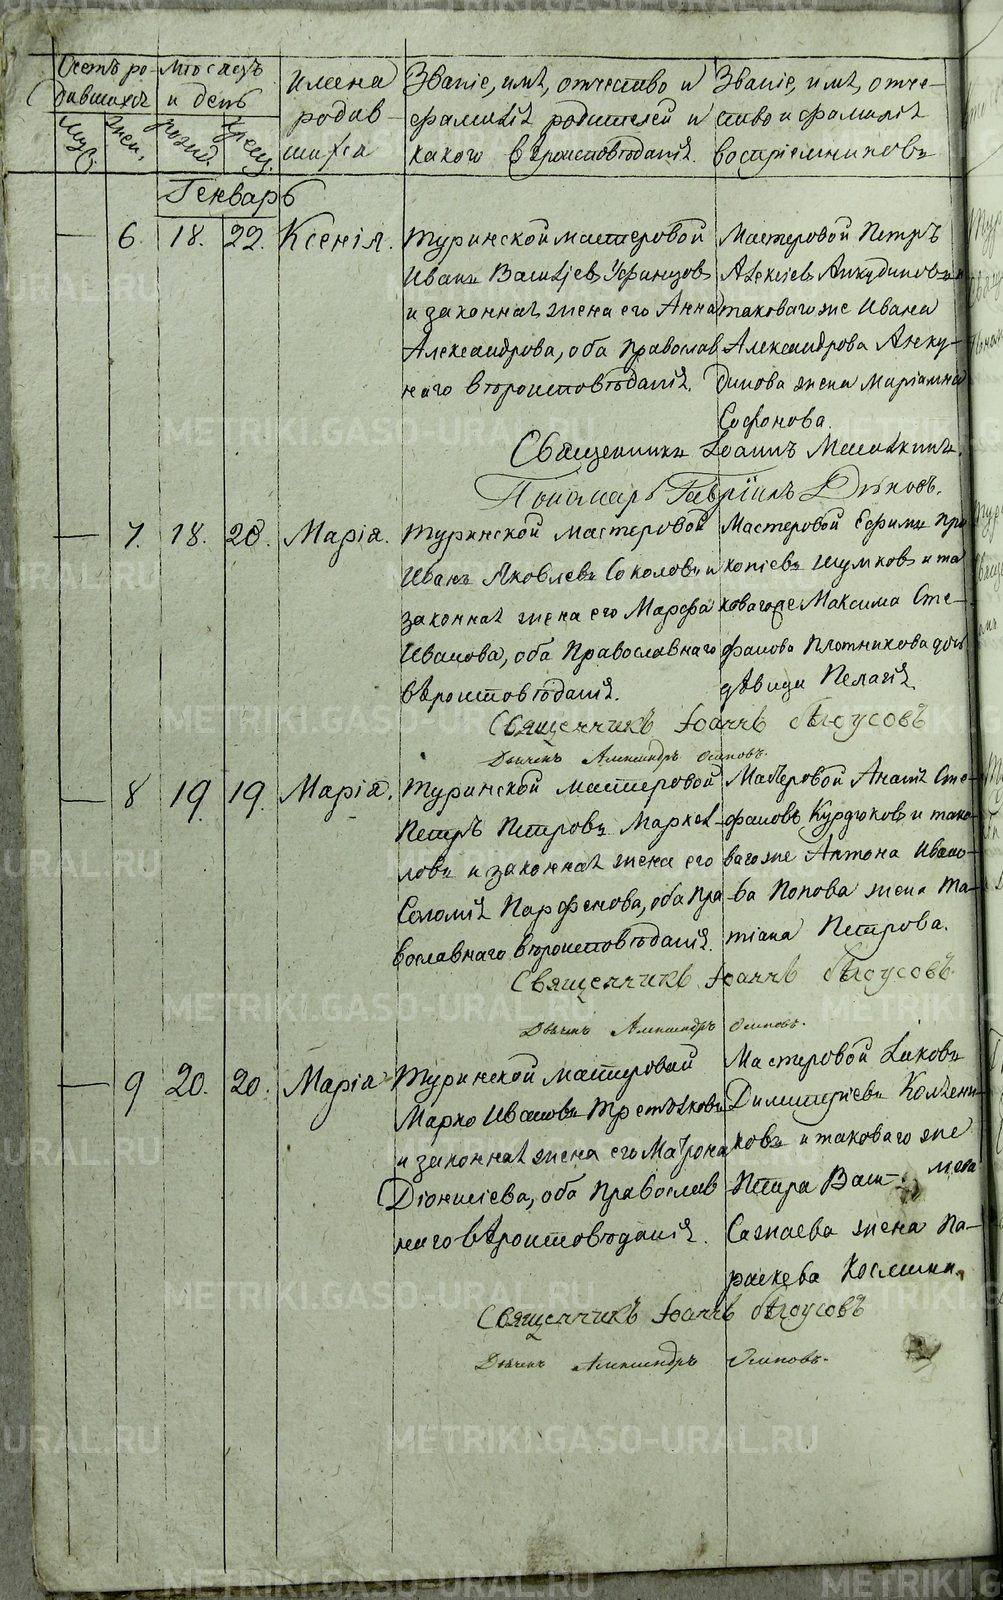 Счетъ ро-
дившихся
Муж.
жен.
Мѣсяцъ
и день
рожд.
крещ.
Имена
родив-
шихся
Званіе, имя, отчество и
фамилія родителей и
какого вѣроисповѣданія.
Званіе, имя, отче-
ство и фамилія
воспріемниковъ
Генварь
— 6. 18. 22. Ксенія.
Туринской мастеровой
Иванъ Васильевъ Уфинцовъ
и законная жена его Анна
Александрова, оба православ
наго вѣроисповѣданія.
Мастеровой Петръ
Алексіевъ Анкудиновъ и
таковагоже Ивана
Александрова Анку-
динова жена Маріамна
Софонова.
Священникъ Іоаннъ
Пономарь Гавріилъ
— 7. 18. 20. Марія.
Туринской мастеровой
Иванъ Яковлевъ Соколовъ и
законная жена его Марфа
Иванова, оба Православнаго
вѣроисповѣданія.
Мастеровой Ефимъ Про
копіевъ Шумковъ и та
ковагоже Максима Сте-
фанова Плотникова дочь
дѣвица Пелагія
Священникъ Іоаннъ Бѣлоусовъ
Дьячекъ Александръ Осиповъ.
— 8 19. 19. Марія.
Туринской мастеровой
Петръ Петровъ Маркел-
ловъ и законная жена его
Соломія Парфенова, оба Пра
вославнаго вѣроисповѣданія.
Мастеровой Ананія Сте-
фановъ Курдюковъ и тако
вагоже Антона Ивано-
ва Попова жена Та-
тіана Петрова.
Священникъ Іоаннъ Бѣлоусовъ
Дьячекъ Александръ Осиповъ.
— 9 20. 20. Марія
Туринской мастеровой
Марко Ивановъ Третьяковъ
и законная жена его Матрона
Діонисіева, оба Православ
наго вѣроисповѣданія.
Мастеровой Іаковъ
Димитріевъ Колѣени
ковъ и таковаго же
Петра
жена Па-
раскева Космина.
Священникъ Іоаннъ Бѣлоусовъ
Дьячекъ Александръ Осиповъ.
METRIKI.GASO-URAL.RU